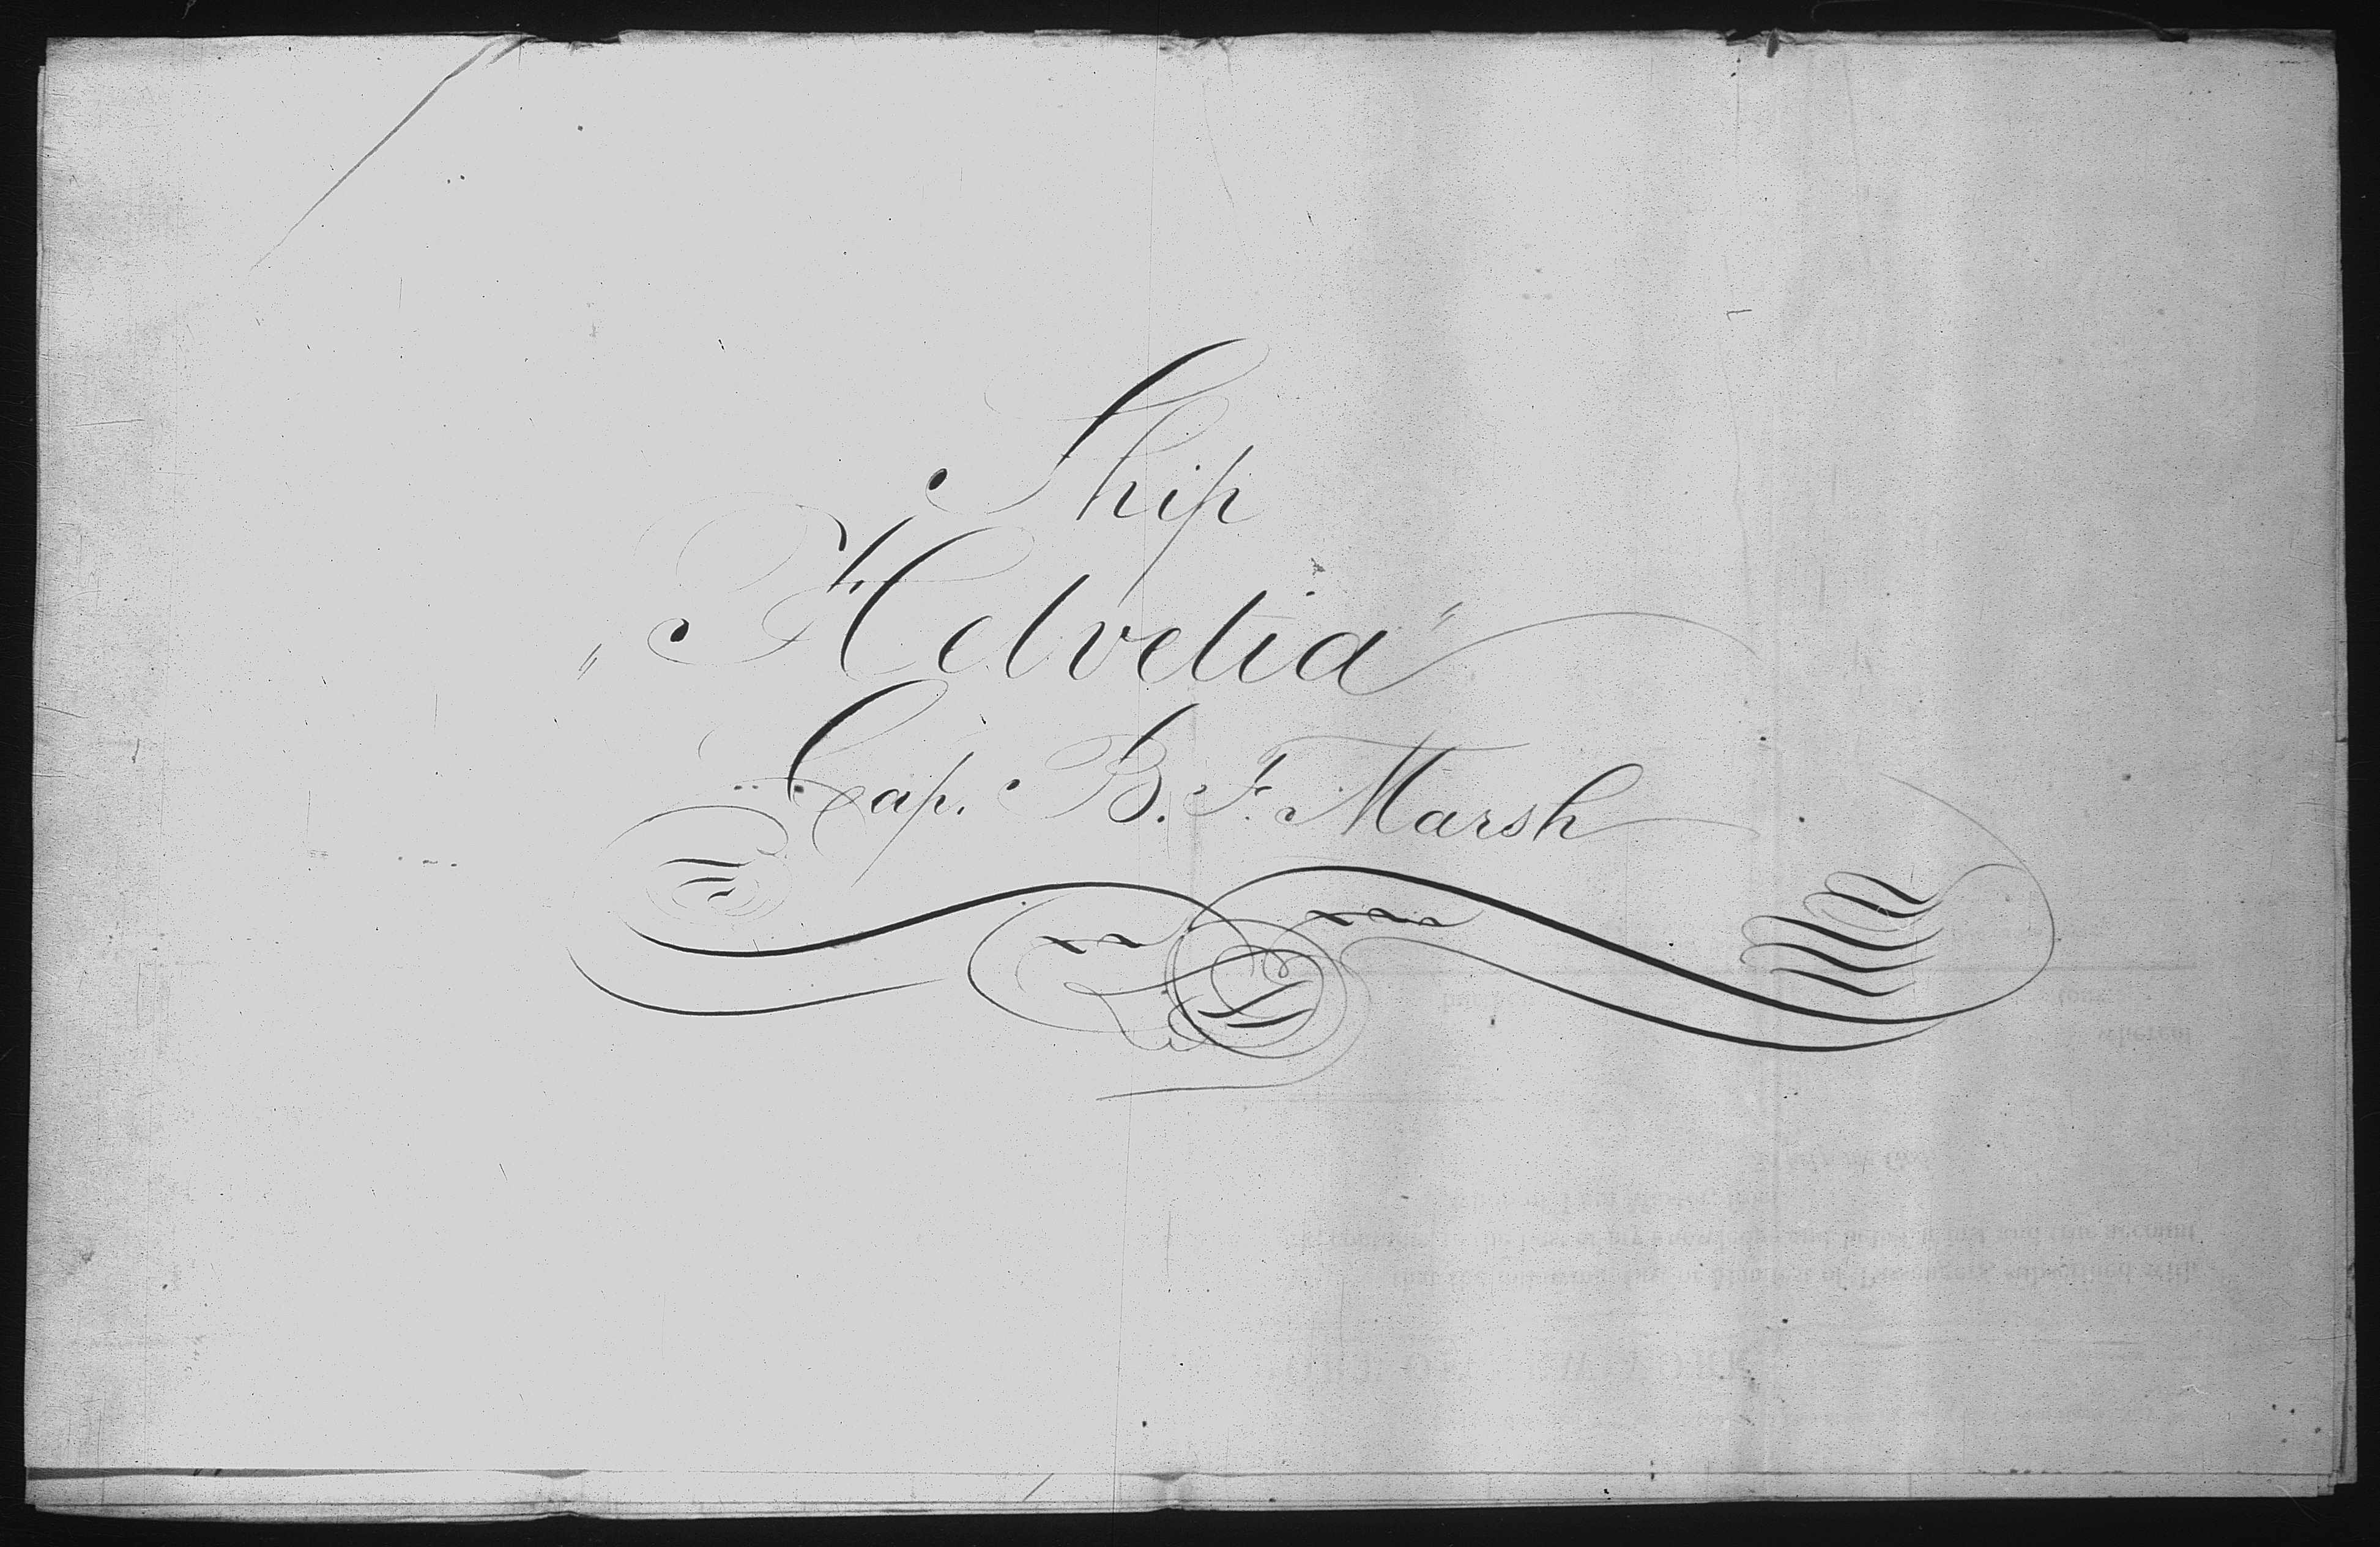 Ship
"Helvetia"
Cap. B. F. Marsh